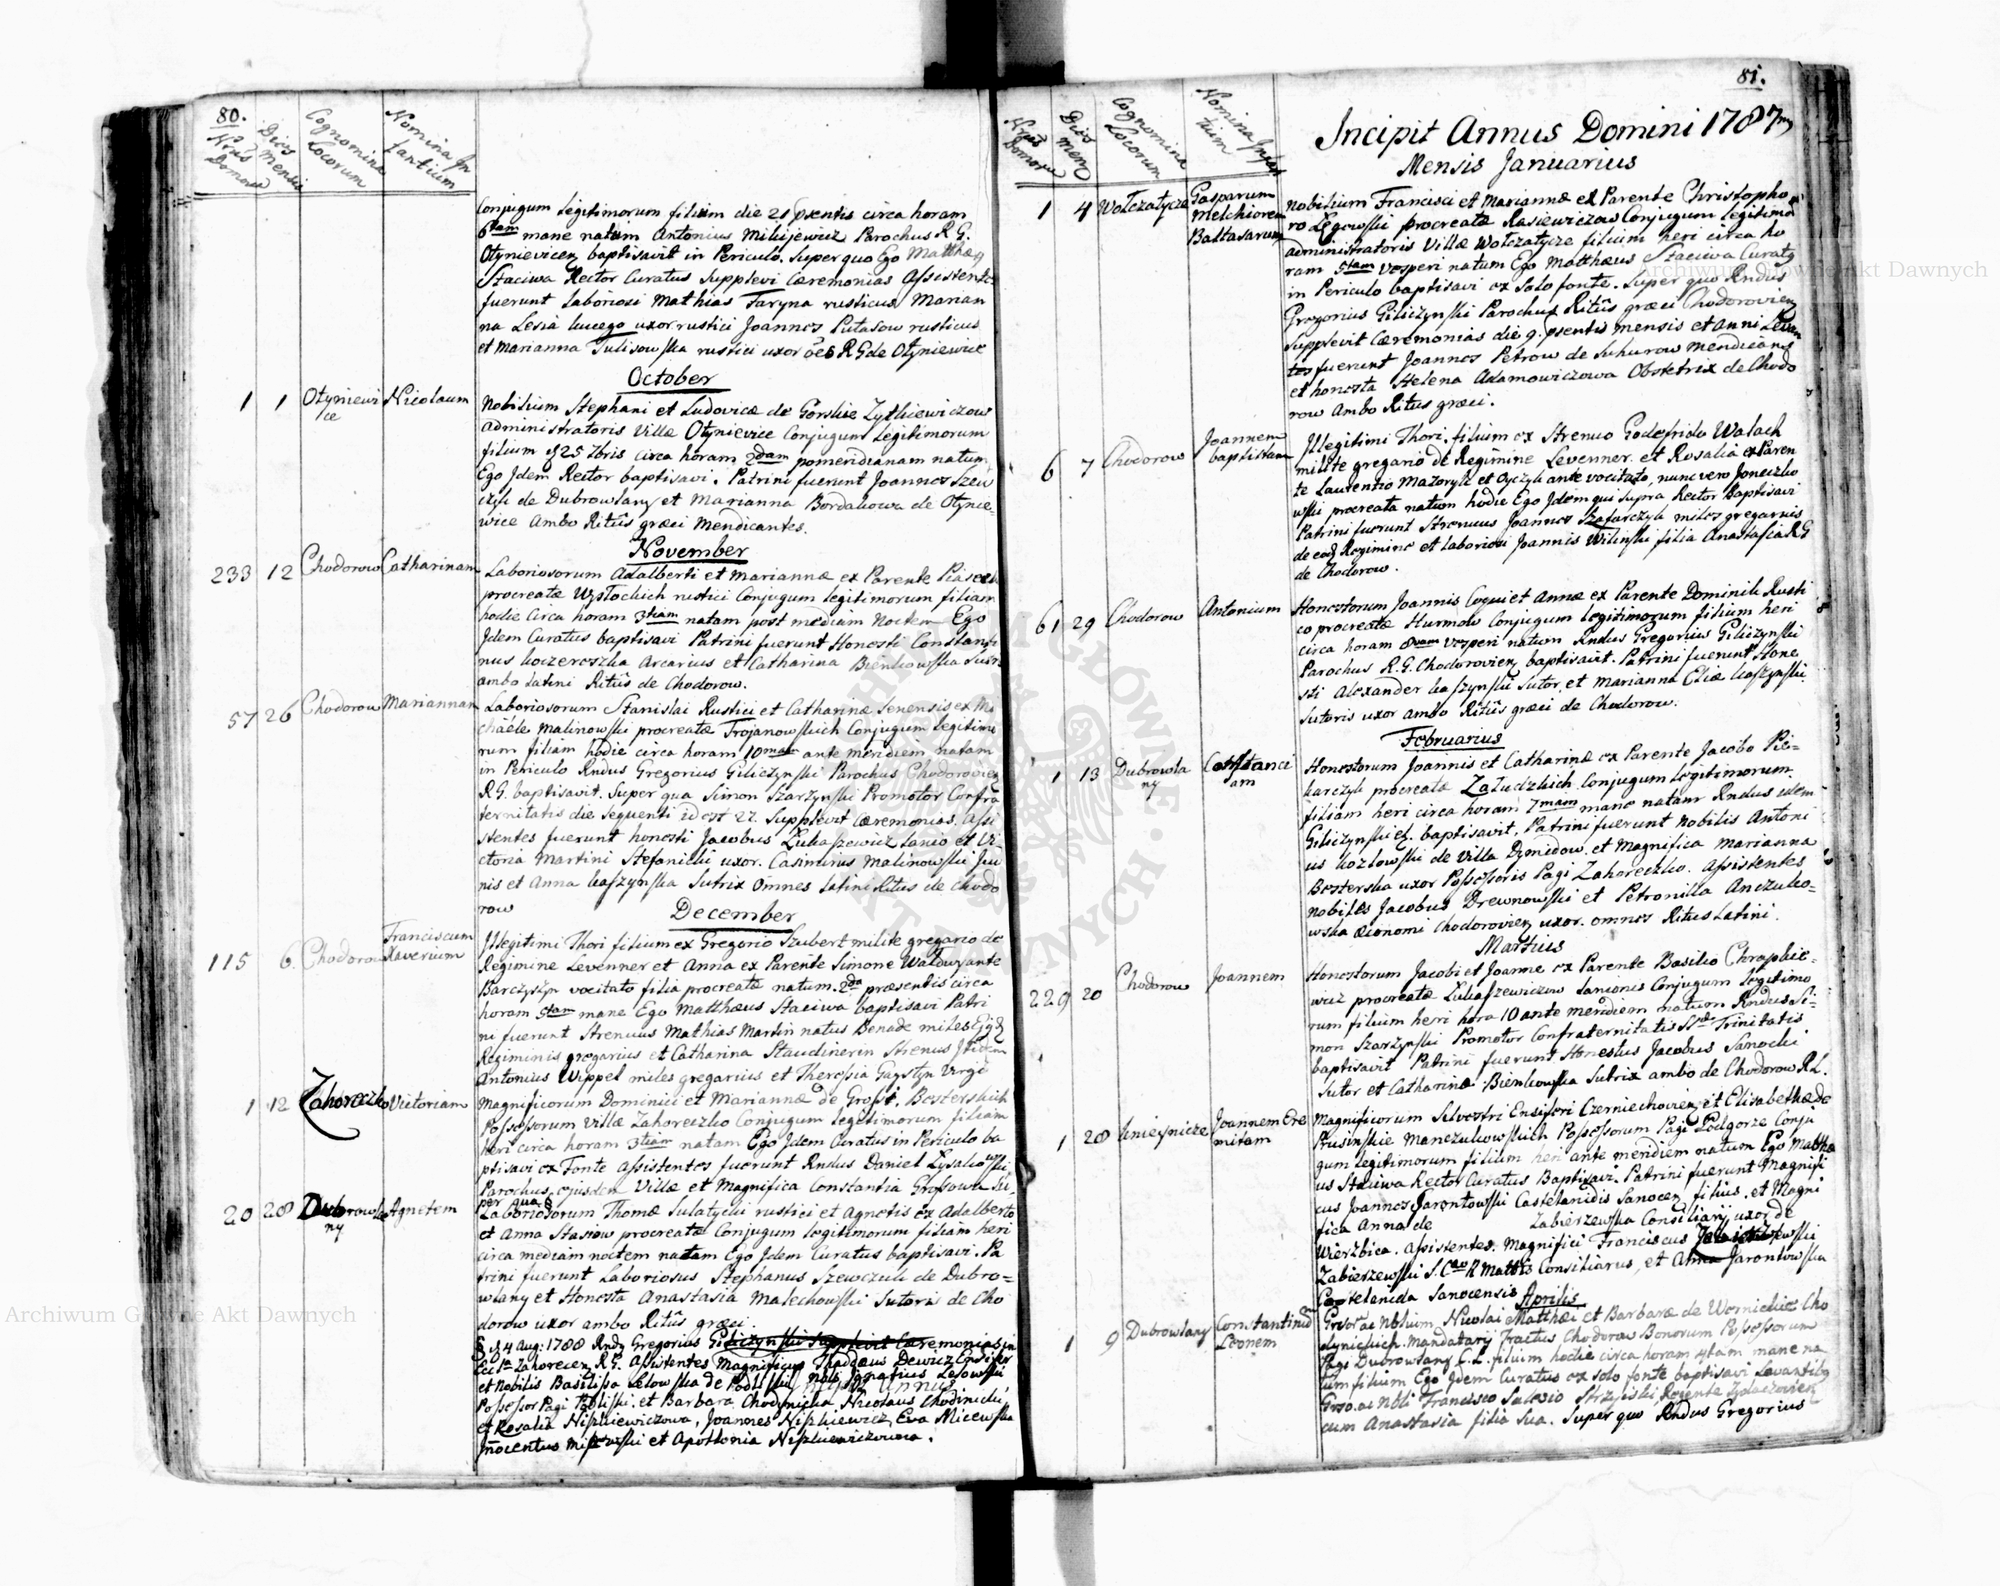 80.
Nrus Domorum
Dies Mensis
Cognomina Locorum
Nomina Infantium
Conjugum legitimorum filium die 21 psentis circa horam
6tam mane natum Antonius Milijewicz Parochus R. G.
Otynievicen baptisavit in Periculo, super quo Ego Matthæg
Staciwa Rector Curatus Supplevi Cæremonias Assistentes
fuerunt Laboriosi Mathias Taryna rusticus Marian
na Lesia uxor rustici Joannes Putasow rusticus
et Marianna Tulisowska rustici uxor oēs R G de Otyniewice
October
1 1 Otyniewi
ce
Nicolaum
Nobilium Stephani et Ludovicæ de Gorskie Zytkiewiczow
administratoris Villæ Otynievice Conjugum Legitimorum
filium d 25 7bris circa horam 2dam pomeridianam natum
Ego Jdem Rector baptisavi. Patrini fuerunt Joannes Szew
czyk de Dubrowlany et Marianna Bordakowa de Otynie=
wice Ambo Ritûs græci Mendicantes.
November
233 12 Chodorow Catharinam
Laboriosorum Adalberti et Mariannæ ex Parente Piasecki
procreatæ Wysockich rustici Conjugum legitimorum filiam
hodie circa horam 3tiam natam post mediam Noctem Ego
Jdem Curatus baptisavi Patrini fuerunt Honesti Constanti
nus Arcarius et Catharina Bienkowska Sutrix
ambo Latini Ritûs de Chodorow.
57 26 Chodorow Mariannam
Laboriosorum Stanislai Rustici et Catharinæ Senensis ex Mi
chaële Malinowski procreatæ Trojanowskich Conjugum legitimo
rum filiam hodie circa horam 10mam ante meridiem natam
in Periculo Rndus Gregorius Giliczynski Parochus Chodorovien
R. G. baptisavit. Super qua Simon Szarzynski Promotor Confra
ternitatis die sequenti id est 27. Supplevit Cæremonias. Assi
stentes fuerunt honesti Jacobus Lukaszewicz Lanio et Vi=
ctoria Martini Stefanicki uxor. Casimirus Malinowski Juve
nis et Anna Kaszynska Sutrix Omnes Latini Ritus de Chodo
row
December
115 6. Chodorow Franciscum
Xaverium
Jllegitimi Thori filium ex Gregorio Szubert milite gregario de
Regimine Levenner et Anna ex Parente Simone Waldwy ante
Barczyszyn vocitato filia procreatæ natum. 2da præsentis circa
horam 5tam mane Ego Matthæus Staciwa baptisavi Patri
ni fuerunt Strenuus Mathias Martin natus Benade miles Ejqd
Regiminis gregarius et Catharina Staudinerin Strenus Jtidem
Antonius Wippel miles gregarius et Theressia Gaystyn Virgo
1 12 Zahoreczko Victoriam
Magnificorum Dominici et Mariannæ de Grossi. Besterskich
Possessorum Villæ Zahoreczko Conjugum legitimorum filiam
heri circa horam 3tiam natam Ego Jdem Curatus in Periculo ba
ptisavi ex Fonte Assistentes fuerunt Rndus Daniel Lysakowski
Parochus, ejusdem Villæ et Magnifica Constantia Grossowa Su=
per qua §
20 28 Dubrowla
ny
Agnetem
Laboriosorum Thomæ Sulatycki rustici et Agnetis ex Adalberto
et Anna Stasiow procreatæ Conjugum legitimorum filiam heri
circa mediam noctem natam Ego Jdem Curatus baptisavi. Pa
trini fuerunt Laboriosus Stephanus Szewczuk de Dubro=
wlany et Honesta Anastasia Malechowski Sutoris de Cho
dorow uxor ambo Ritûs græci.
§ d 4 Aug: 1788 Rndg Gregorius Giliczynski Supplevit Cæremonias in
Eccla Zahorecen R. G. Assistentes Magnificus Thaddæus Dewicz Ensifer
et Nobilis Basilissa Lelowska de Podliski, nob. Ignatius Lelowski
Possessor Pagi Podliski. et Barbara Chodynicka Nicolaus Chodinicki
et Rosalia Niszkiewiczowa, Joannes Niszkiewicz, Eva Micewska
Jnnocentius et Apollonia Niszkiewiczowna.
81.
Nrus Domorum
Dies Mens
Cognomina Locorum
Nomina Infantium
Incipit Annus Domini 1787mus
Mensis Januarius
1 4 Wolczatycze Gasparum
Melchiorem
Baltasarum
Nobilium Francisci et Mariannæ ex Parente Christopho
ro Legowski procreatæ Rasiewiczow Conjugum legitimo
administratoris Villæ Wolczatycze filium heri circa ho
ram 5tam vesperi natum Ego Matthæus Staciwa Curatg
in Periculo baptisavi ex Solo fonte. Super quo Rndus
Gregorius Giliczynski Parochus Ritûs græci Chodorovien
Supplevit Cæremonias die 9. psentis mensis et anni Levan
tes fuerunt Joannes Petrow de Suhurow mendicans
et honesta Helena Adamowiczowa Obstetrix de Chodo
row Ambo Ritus græci.
6 7 Chodorow Joannem
baptistam
Jllegitimi Thori, filium ex Strenuo Godefrido Walach
milite gregario de Regimine Levenner. et Rosalia ex Paren
te Laurentio Mazoryk et Oyczyk ante vocitato, nunc vero Joneczko
wski procreata natum hodie Ego Jdem qui supra Rector Baptisavi
Patrini fuerunt Strenuus Joannes Szafarczyk miles gregarius
de eod Regimine et Laboriosi Joannis Wilinski filia Anastasia R G
de Chodorow.
61 29 Chodorow Antonium
Honestorum Joannis Coqui et Annæ ex Parente Dominik Rusti
co procreatæ Hurmow Conjugum legitimorum filium heri
circa horam 8vam vesperi natum Rndus Gregorius Giliczynski
Parochus R. G. Chodorovien baptisavit. Patrini fuerunt Hone
sti Alexander Kaszynski Sutor, et Marianna Eliæ Kaszynski
Sutoris uxor ambo Ritûs græci de Chodorow.
Februarius
1 13 Dubrowla
ny
Constanci
am
Honestorum Joannis et Catharinæ ex Parente Jacobo Pie=
karczyk procreatæ Zaludzkich Conjugum legitimorum
filiam heri circa horam 7mam mane natam Rndus idem
Giliczynski baptisavit. Patrini fuerunt Nobilis Antoni
us Kozlowski de Villa Dymidow et Magnifica Marianna
Besterska uxor Possessoris Pagi Zahoreczko. Assistentes
Nobiles Jacobus Drewnowski et Petronilla Anczuko=
wska Œconomi Chodorovien uxor. omnes Ritus Latini.
Martius
229 20 Chodorow Joannem
Honestorum Jacobi et Joannæ ex Parente Basilio Chraplie=
wicz procreatæ Lukaszewiczow Lanionis Conjugum legitimo
rum filium heri hora 10 ante meridiem natum Rndus Si=
mon Szarzynski Promotor Confraternitatis SSæ Trinitatis
baptisavit Patrini fuerunt Honestus Jacobus Sanocki
Sutor et Catharina Bienkowska Sutrix ambo de Chodorow R. L.
1 28 Kniesynicze Joannem Ere
mitam
Magnificorum Silvestri Ensiferi Czerniechovien et Elisabethæ de
Prusinskie Manczukowskich Possessorum Pagi Podgorze Conju
gum legitimorum filium heri ante meridiem natum Ego Matthæ
us Staciwa Rector Curatus Baptisavi. Patrini fuerunt Magnifi
cus Joannes Jarontowski Castelanidis Sanocen filius. et Magni
fica Anna de Zabierzewska Consiliarij uxor de
Wierzbica. Assistentes. Magnifici Franciscus
Zabierzewski S. C. R. Mattis Consiliarius, et Anna Jarontowska
Castelanida Sanocensis
Aprilis
1 9 Dubrowlany Constantinū
Leonem
Grosoe ac Nbilium Nicolai Matthæi et Barbaræ de Wornickie Cho
dynickich. Mandatarij Tractus Chodorow Bonorum Possessorum
Pagi Dubrowlany C. L. filium hodie circa horam 4tam mane na
tum filium Ego Jdem Curatus ex solo fonte baptisavi Levantibg
Groso. ac Nbli Francisco Sulesio Strzyiski, Regente Zydaczovien
cum Anastasia filia sua. Super quo Rndus Gregorius
Archiwum Główne Akt Dawnych
Archiwum Główne Akt Dawnych